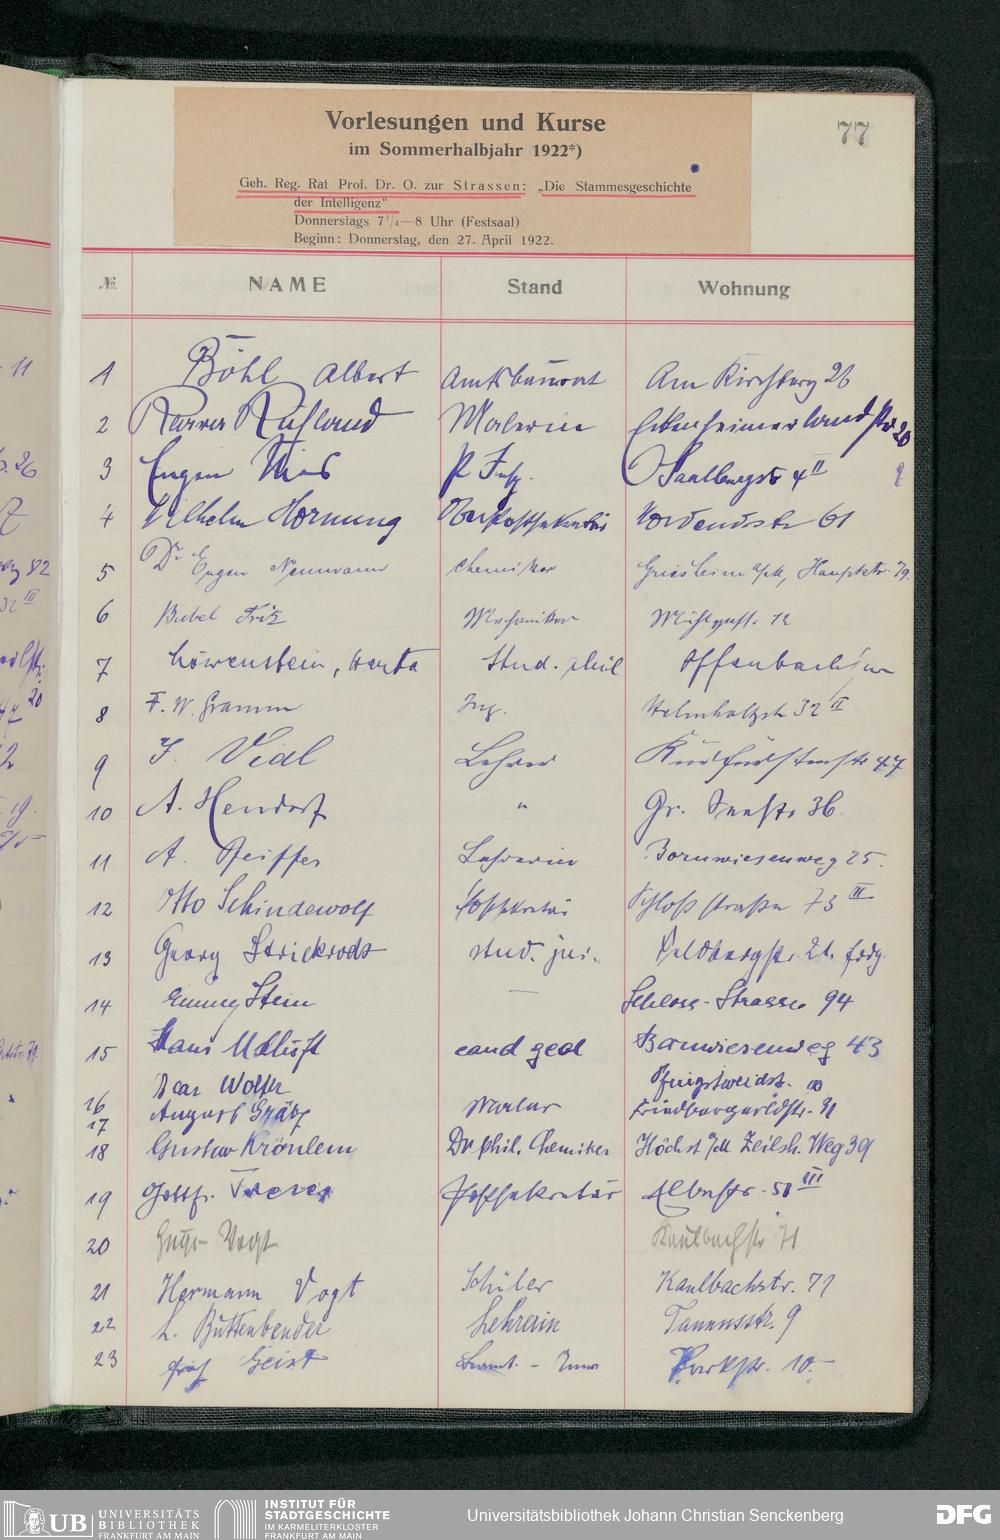 77
Vorlesungen und Kurse
im Sommerhalbjahr 1922*)
Geh. Reg. Rat Prof. Dr. O. zur Strassen: „Die Stammesgeschichte
der Intelligenz“
Donnerstags 7¹/₄—8 Uhr (Festsaal)
Beginn: Donnerstag, den 27. April 1922.
№ NAME Stand Wohnung
1 Böhl Albert Amtsbaurat Am Kirchberg 26
2 Rußland Malerin Eckenheimerlandstr 20
3 Eugen Saalburgstr 4 II
4 Wilhelm Hornung Oberpostsekretär Nordendstr 61
5 Dr Eugen Neumann Chemiker Griesheim a/M, Hauptstr. 79.
6 Bubel Fritz Mechaniker 12
7 Löwenstein, Herta Stud. phil Offenbach
8 F. W. Gramm Ing. Helmholtzstr 32 II
9 J. Vidl Lehrer Kurfürstenstr 47
10 A. Hendorf " Gr. Seestr. 36.
11 A. Pfeiffer Lehrerin Bornwiesenweg 25.
12 Otto Schindewolf Postsekretär Schloßstraße 73 III
13 Georg Strickrodt stud. jur. Feldbergstr. 21.
14 Emmy Stein — Schloss-Strasse 94
15 Hans Udluft cand geol Bornwiesenweg 43
16 Wolff Pfingstweidstr.
17 August Gräby Maler Friedbergerldstr. 31
18 Gustav Krönlein Dr phil. Chemiker Höchst a/M Zeilsh. Weg 39
19 Gottfr. Postsekretär Albustr. 50 III
20 Vogt Kaulbachstr 71
21 Hermann Vogt Schüler Kaulbachstr. 71
22 L. Büttenbender Lehrerin Taunusstr. 9
23 Geist Parkstr. 10.-
UB UNIVERSITÄTS
BIBLIOTHEK
FRANKFURT AM MAIN
INSTITUT FÜR
STADTGESCHICHTE
IM KARMELITERKLOSTER
FRANKFURT AM MAIN
Universitätsbibliothek Johann Christian Senckenberg
DFG